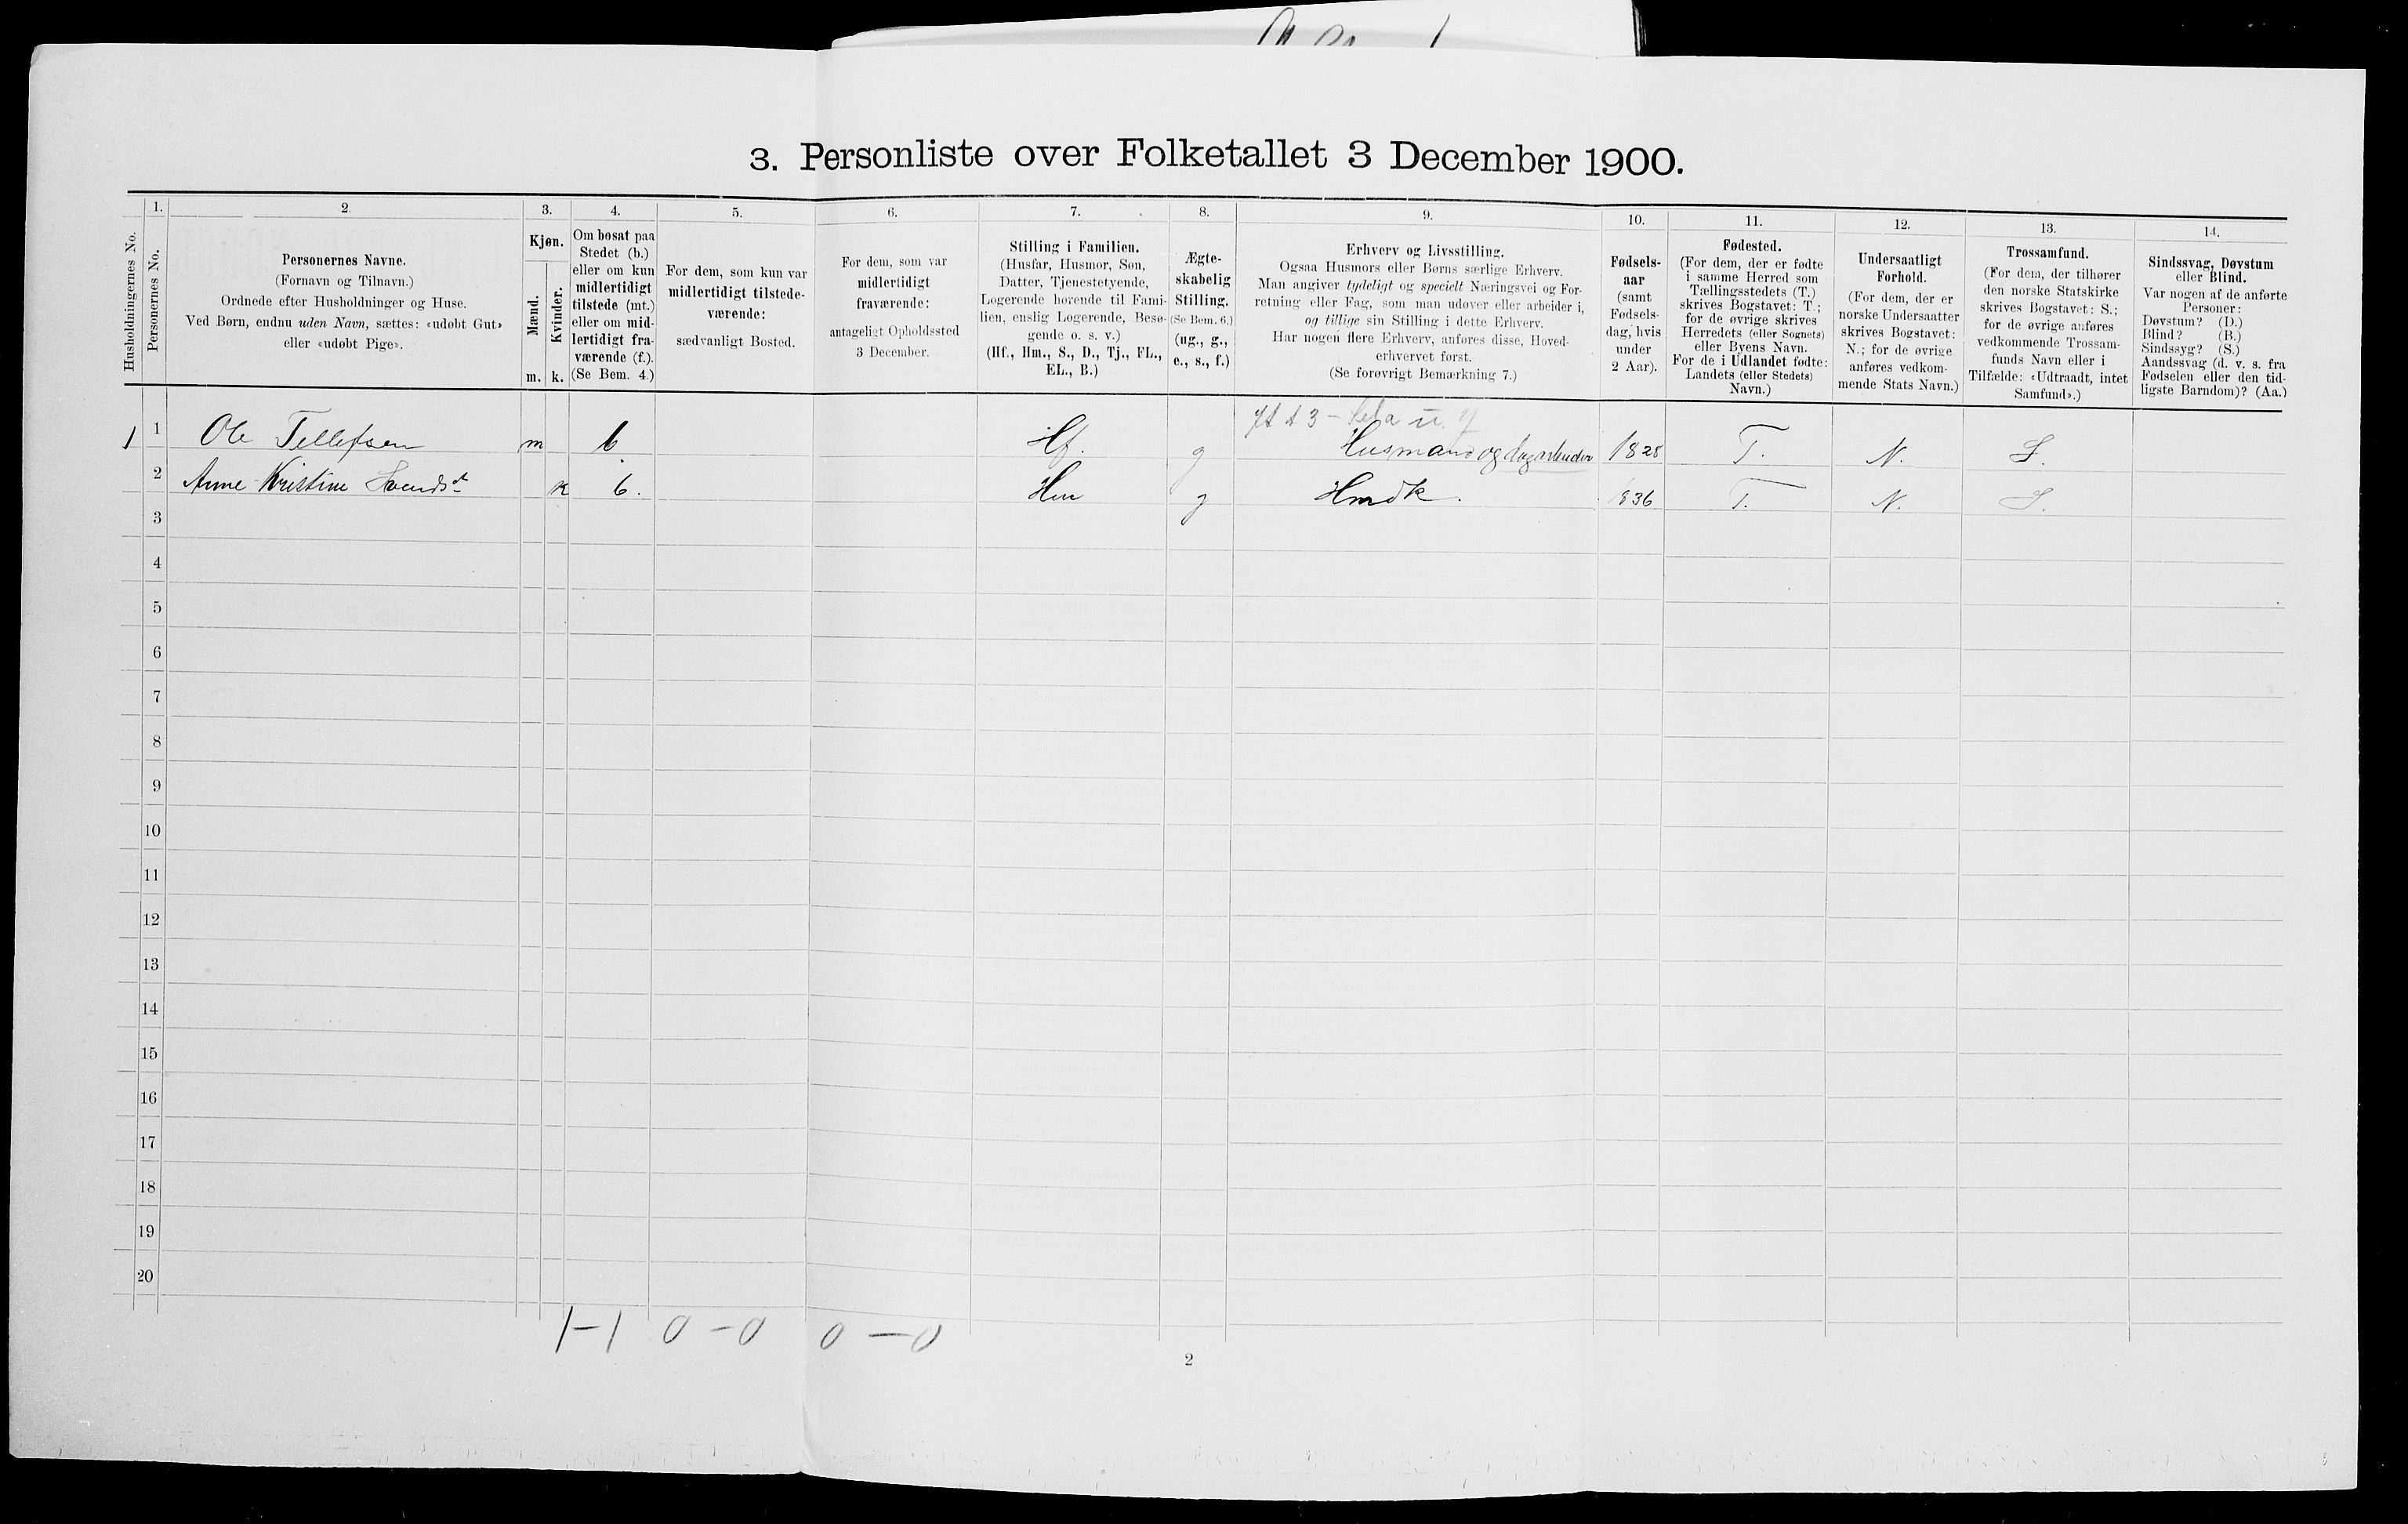 3. Personliste over Folketallet 3 December 1900.
1. 2. 3. 4. 5. 6. 7. 8. 9. 10. 11. 12. 13. 14.
Husholdningernes No.
Personernes No.
Personernes Navne.
(Fornavn og Tilnavn.)
Ordnede efter Husholdninger og Huse.
Ved Børn, endnu uden Navn, sættes: «udøbt Gut»
eller «udøbt Pige».
Kjøn.
Mænd.
Kvinder.
m. k.
Om bosat paa
Stedet (b.)
eller om kun
midlertidigt
tilstede (mt.)
eller om mid-
lertidigt fra-
værende (f.).
(Se Bem. 4.)
For dem, som kun var
midlertidigt tilstede-
værende:
sædvanligt Bosted.
For dem, som var
midlertidigt
fraværende:
antageligt Opholdssted
3 December.
Stilling i Familien.
(Husfar, Husmor, Søn,
Datter, Tjenestetyende,
Logerende hørende til Fami-
lien, enslig Logerende, Besø-
gende o. s. v.)
(Hf., Hm., S., D., Tj., FL.,
EL., B.)
Ægte-
skabelig
Stilling.
(Se Bem. 6.)
(ug., g.,
e., s., f.)
Erhverv og Livsstilling.
Ogsaa Husmors eller Børns særlige Erhverv.
Man angiver tydeligt og specielt Næringsvei og For-
retning eller Fag, som man udøver eller arbeider i,
og tillige sin Stilling i dette Erhverv.
Har nogen flere Erhverv, anføres disse, Hoved-
erhvervet først.
(Se forøvrigt Bemærkning 7.)
Fødsels-
aar
(samt
Fødsels-
dag, hvis
under
2 Aar).
Fødested.
(For dem, der er fødte
i samme Herred som
Tællingsstedets (T.)
skrives Bogstavet: T.;
for de øvrige skrives
Herredets (eller Sognets)
eller Byens Navn.
For de i Udlandet fødte:
Landets (eller Stedets)
Navn.)
Undersaatligt
Forhold.
(For dem, der er
norske Undersaatter
skrives Bogstavet:
N.; for de øvrige
anføres vedkom-
mende Stats Navn.)
Trossamfund.
(For dem, der tilhører
den norske Statskirke
skrives Bogstavet: S.;
for de øvrige anføres
vedkommende Trossam-
funds Navn eller i
Tilfælde: «Udtraadt, intet
Samfund».)
Sindssvag, Døvstum
eller Blind.
Var nogen af de anførte
Personer:
Døvstum? (D.)
Blind? (B.)
Sindssyg? (S.)
Aandssvag (d. v. s. fra
Fødselen eller den tid-
ligste Barndom)? (Aa.)
1 1 Ole Tellefsen m b. Hf. g Husmand og dagarbeider 1828 T. N. S.
2 Anne Kristine k b. Hm g 1836 T. N. S.
3
4
5
6
7
8
9
10
11
12
13
14
15
16
17
18
19
20
1-1 0-0 0-0
2